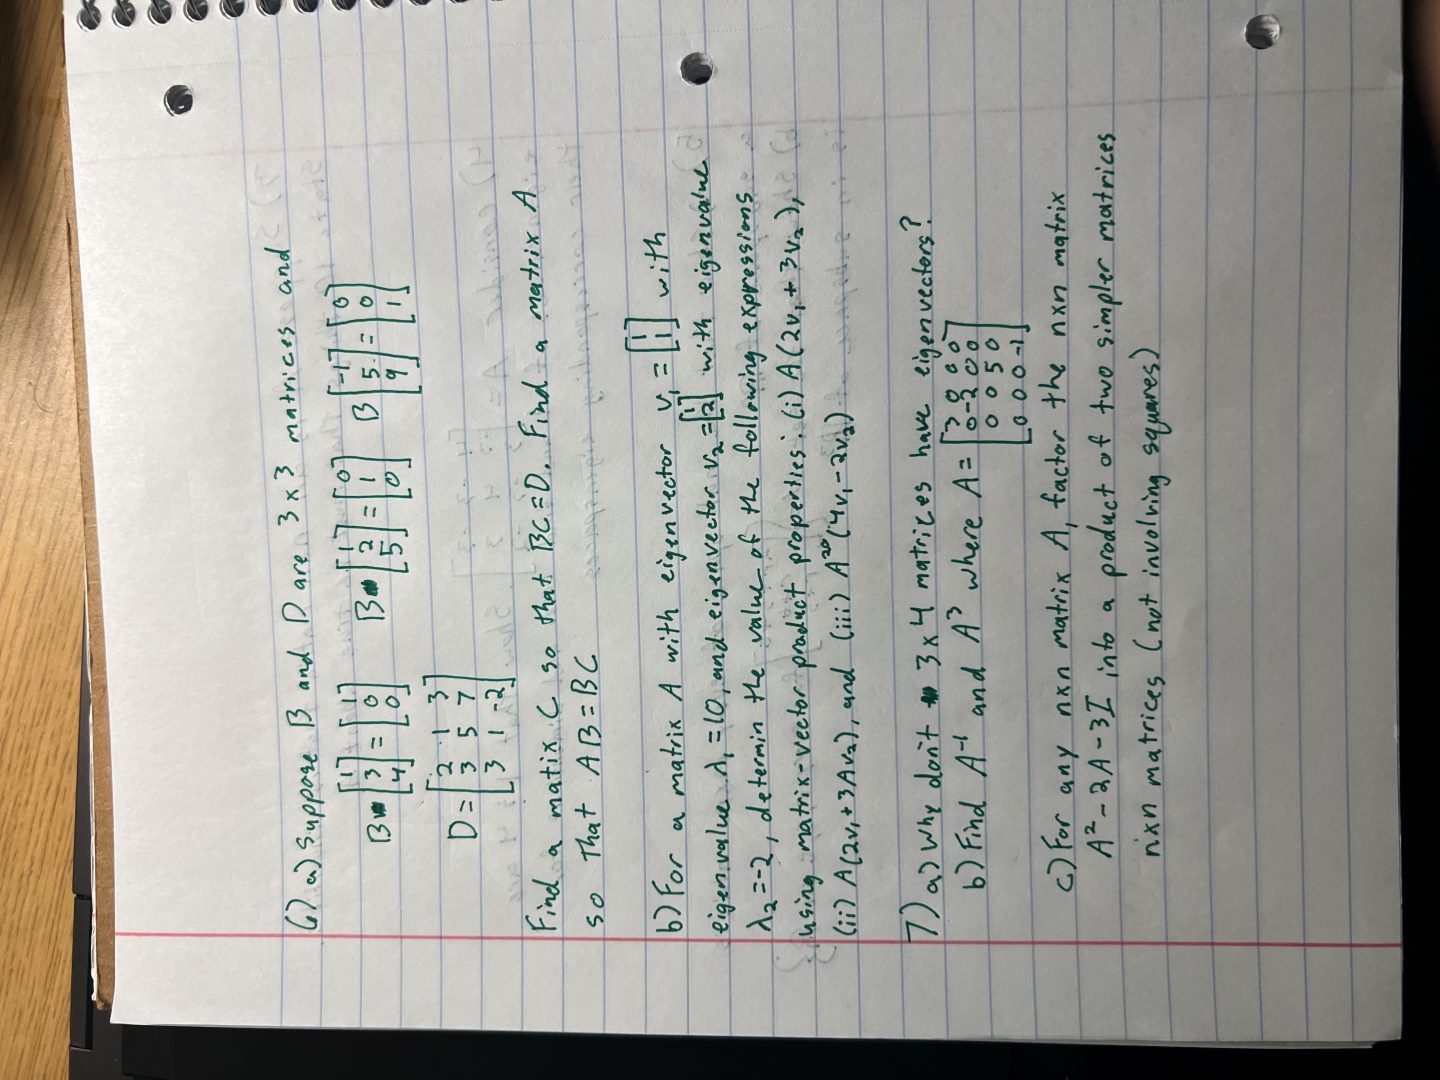 6) a) Suppose B and D are 3 x 3 matrices and
B [1 3 4] = [1 0 0] B [1 2 5] = [0 1 0] B [-1 5 9] = [0 0 1]
D = [2 1 3
3 5 7
3 1 -2]
Find a matix C so that BC = D. Find a matrix A
so that AB = BC
b) For a matrix A with eigenvector v₁ = [1 1] with
eigenvalue λ₁ = 10, and eigenvector v₂ = [1 2] with eigenvalue
λ₂ = -2, determin the value of the following expressions
using matrix-vector product properties: (i) A(2v₁ + 3v₂),
(ii) A(2v₁ + 3Av₂), and (iii) A²⁰(4v₁ - 2v₂)
7) a) Why don't 3 x 4 matrices have eigenvectors?
b) Find A⁻¹ and A³ where A = [3 0 0 0
0 -2 0 0
0 0 5 0
0 0 0 -1]
c) For any nxn matrix A, factor the nxn matrix
A² - 2A - 3I into a product of two simpler matrices
nxn matrices (not involving squares)